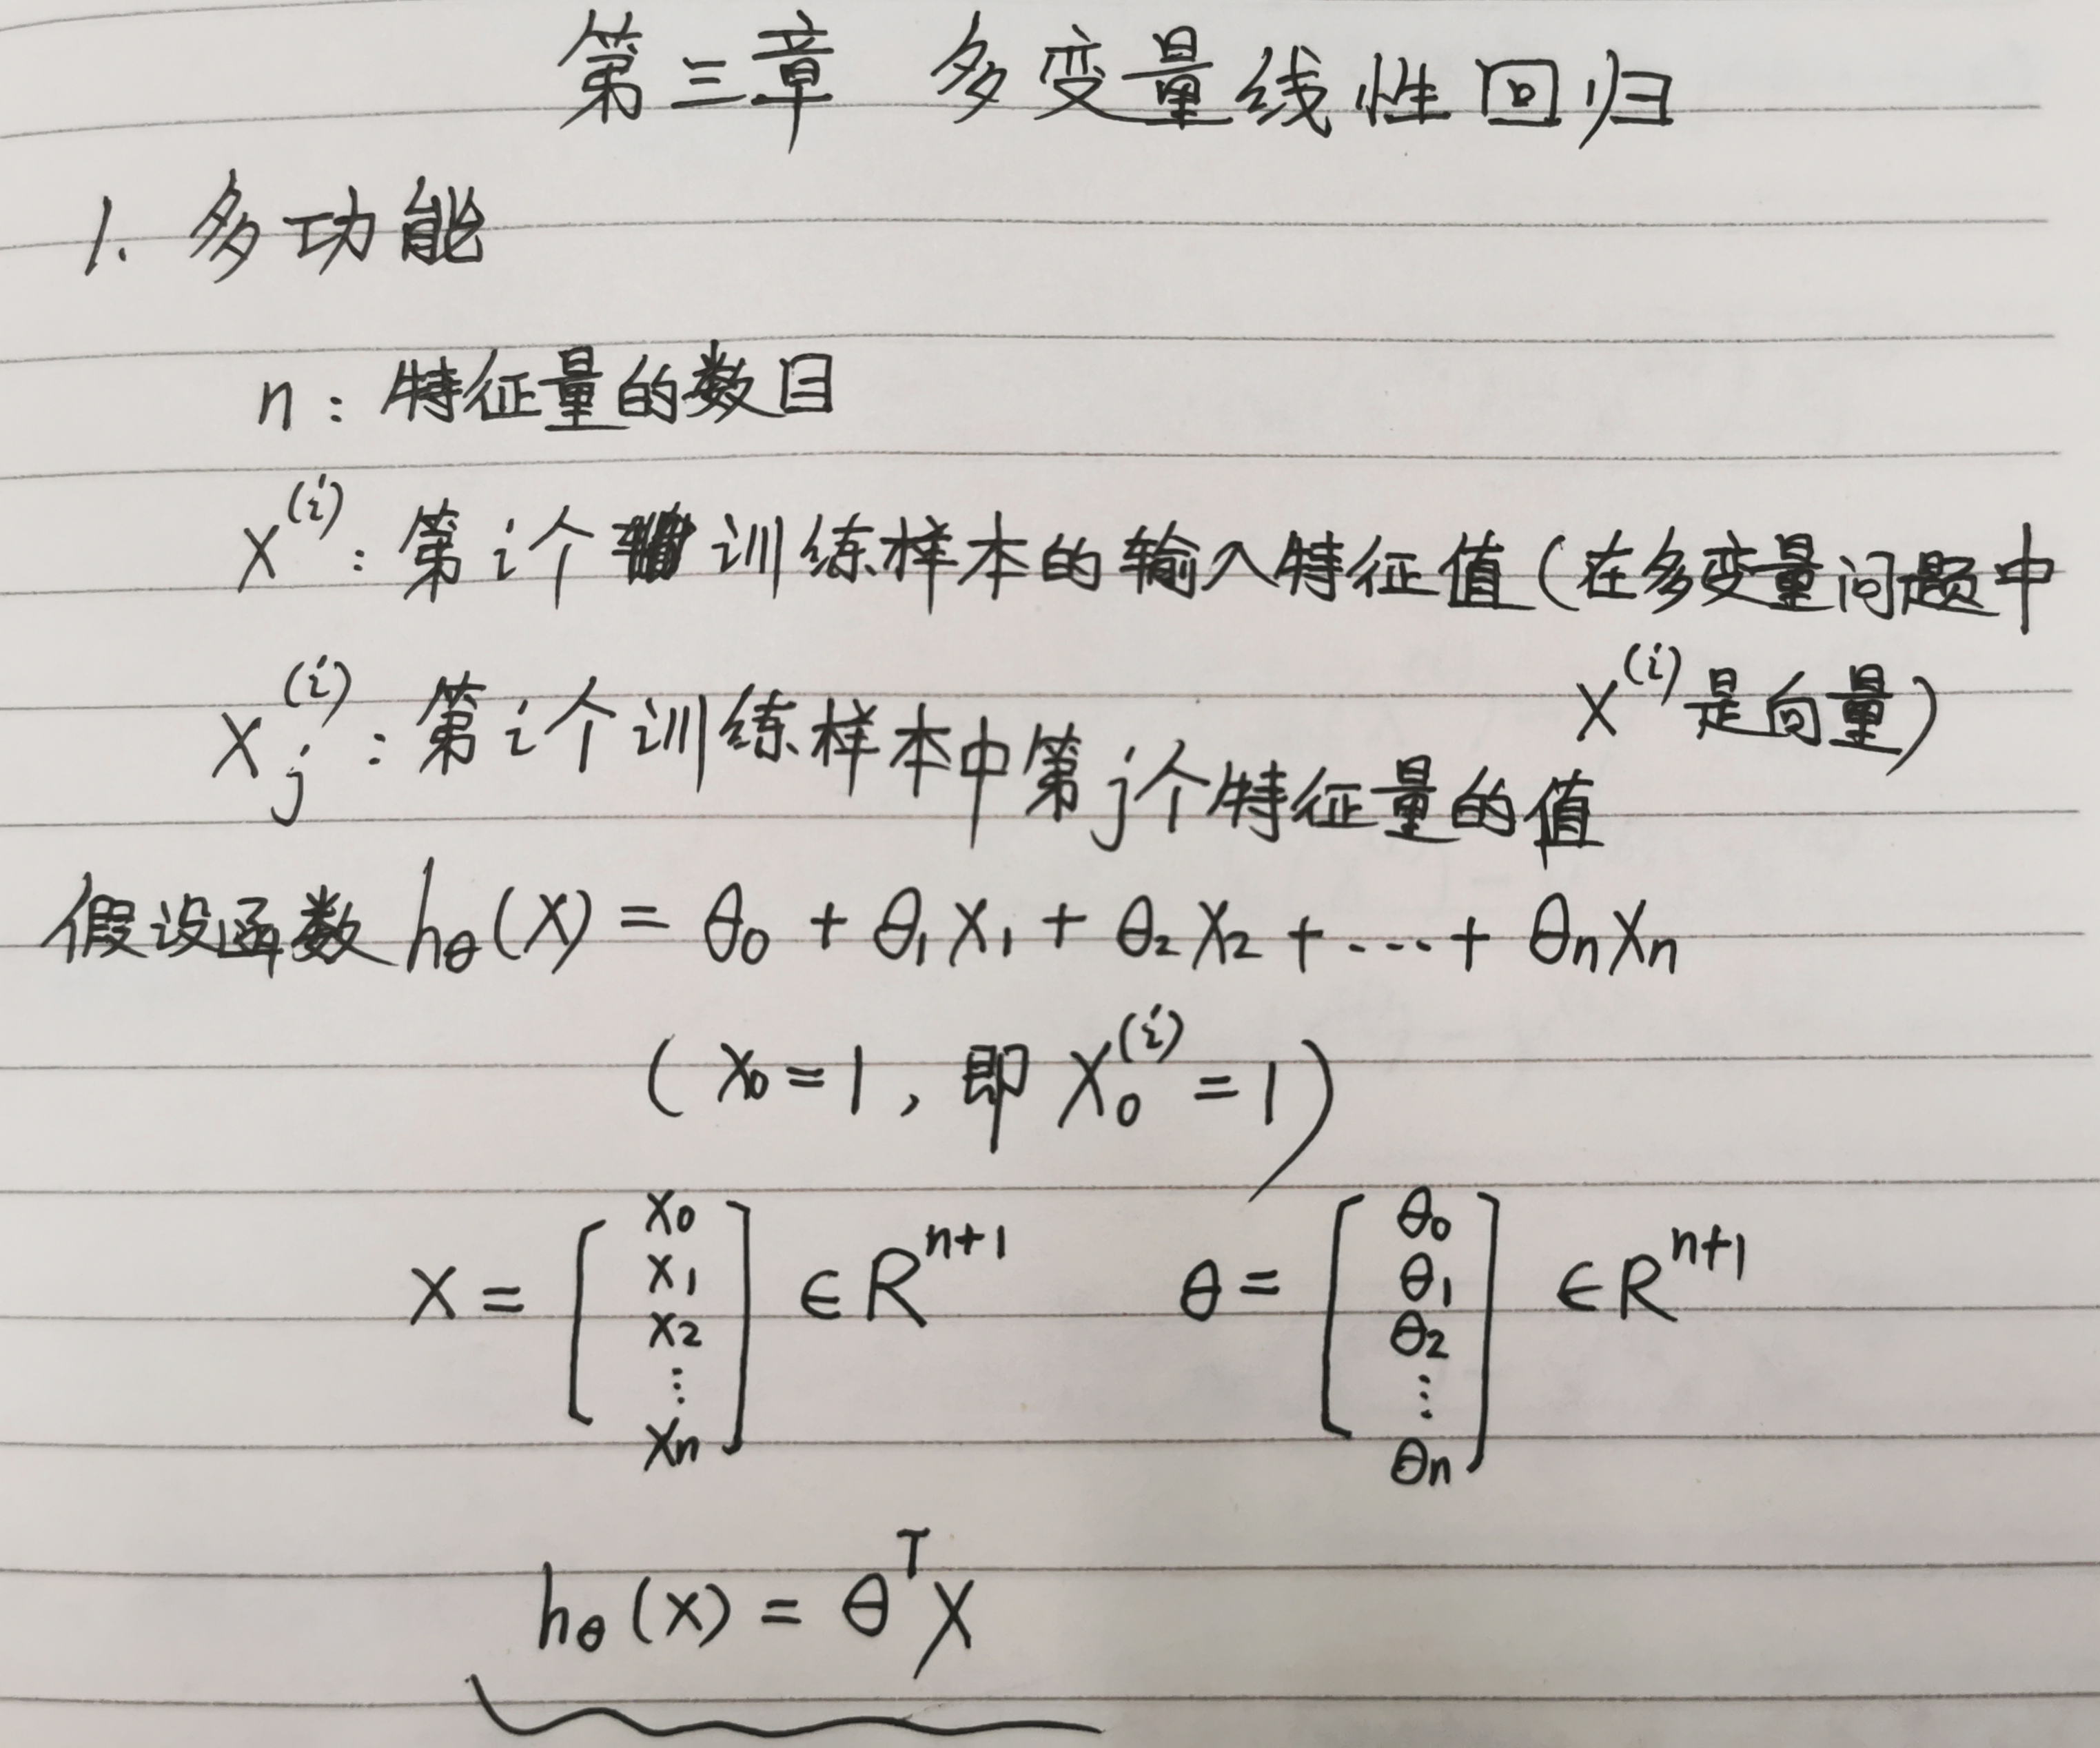 第三章 多变量线性回归
1. 多功能
n：特征量的数目
x^(i)：第i个训练样本的输入特征值（在多变量问题中
x^(i)是向量）
x_j^(i)：第i个训练样本中第j个特征量的值
假设函数 h_θ(x) = θ_0 + θ_1 x_1 + θ_2 x_2 + ... + θ_n x_n
（x_0 = 1，即 x_0^(i) = 1）
x = [x_0 x_1 x_2 ⋮ x_n] ∈ R^(n+1) θ = [θ_0 θ_1 θ_2 ⋮ θ_n] ∈ R^(n+1)
h_θ(x) = θ^T x